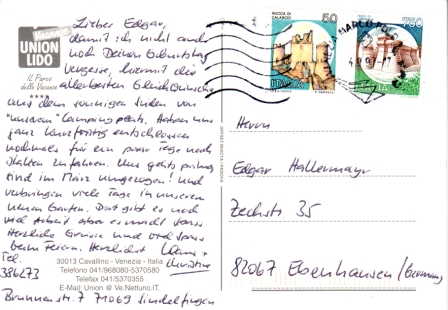 Vacanze
UNION
LIDO
Il Parco
delle Vacanze
****
Lieber Edgar,
damit ich nicht auch
noch Deinen Geburtstag
vergesse, hiermit die
allerbesten Glückwünsche
aus dem sonnigen Süden von
"unserem" Campingplatz. Haben uns
ganz kurzfristig entschlossen
nochmals für ein paar Tage nach
Italien zu fahren. Uns gehts prima
sind im März umgezogen! und
verbringen viele Tage in unserem
neuen Garten. Dort gibt es noch
viel Arbeit aber es macht Spass
Herzliche Grüsse und viel Spass
beim Feiern. Herzlichst
Christine
Tel.
386273
30013 Cavallino - Venezia - Italia
Telefono 041/968080-5370580
Telefax 041/5370355
E-Mail: Union @ Ve.Nettuno.IT.
Brunnenstr. 7 71069 Sindelfingen
ROCCA DI
CALASCIO
50
750
ITALIA
MARCO POLO
Herrn
Edgar Hallermayr
Zechstr. 35
82067 Ebenhausen/Germany